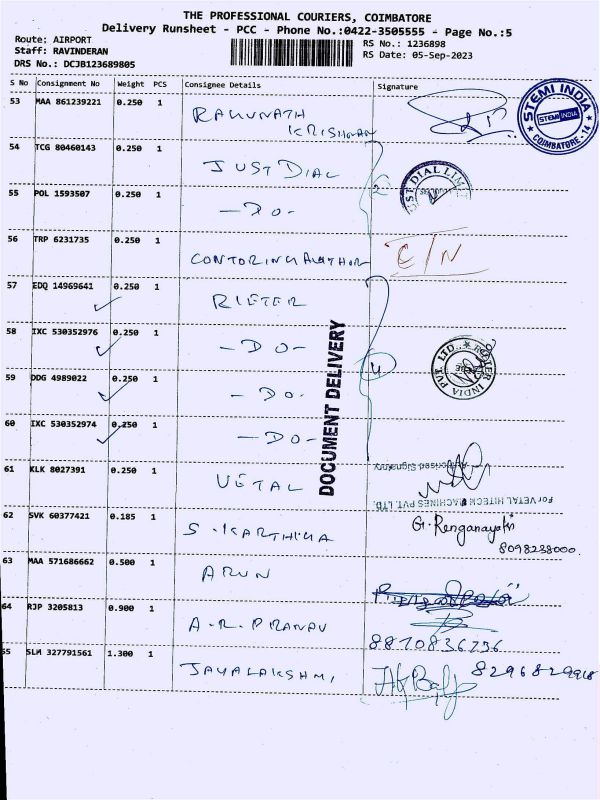 THE PROFESSIONAL COURIERS, COIMBATORE
Delivery Runsheet - PCC - Phone No.:0422-3505555 - Page No.:5
Route: AIRPORT
Staff: RAVINDERAN
DRS No.: DCJB123689805
RS No.: 1236898
RS Date: 05-Sep-2023
S No Consignment No Weight PCS Consignee Details Signature
STEMI INDIA
STEMI INDIA
COIMBATORE - 14
53 MAA 861239221 0.250 1
KRISHNAN
54 TCG 80460143 0.250 1 JUST DIAL
2
55 POL 1593507 0.250 1 -DO-
56 TRP 6231735 0.250 1
57 EDQ 14969641 0.250 1 RIETER
58 IXC 530352976 0.250 1 -DO-
59 DDG 4989022 0.250 1 -DO-
4
60 IXC 530352974 0.250 1 -DO-
DOCUMENT DELIVERY
61 KLK 8027391 0.250 1 VETAL
Authorised Signatory
For VETAL HITECH MACHINES PVT. LTD.
62 SVK 60377421 0.185 1 S. KARTHIKA
G. Renganayaki
8098238000
63 MAA 571686662 0.500 1 ARUN
64 RJP 3205813 0.900 1 A.R. PRANAV
8870836736
65 SLM 327791561 1.300 1 JAYALAKSHMI